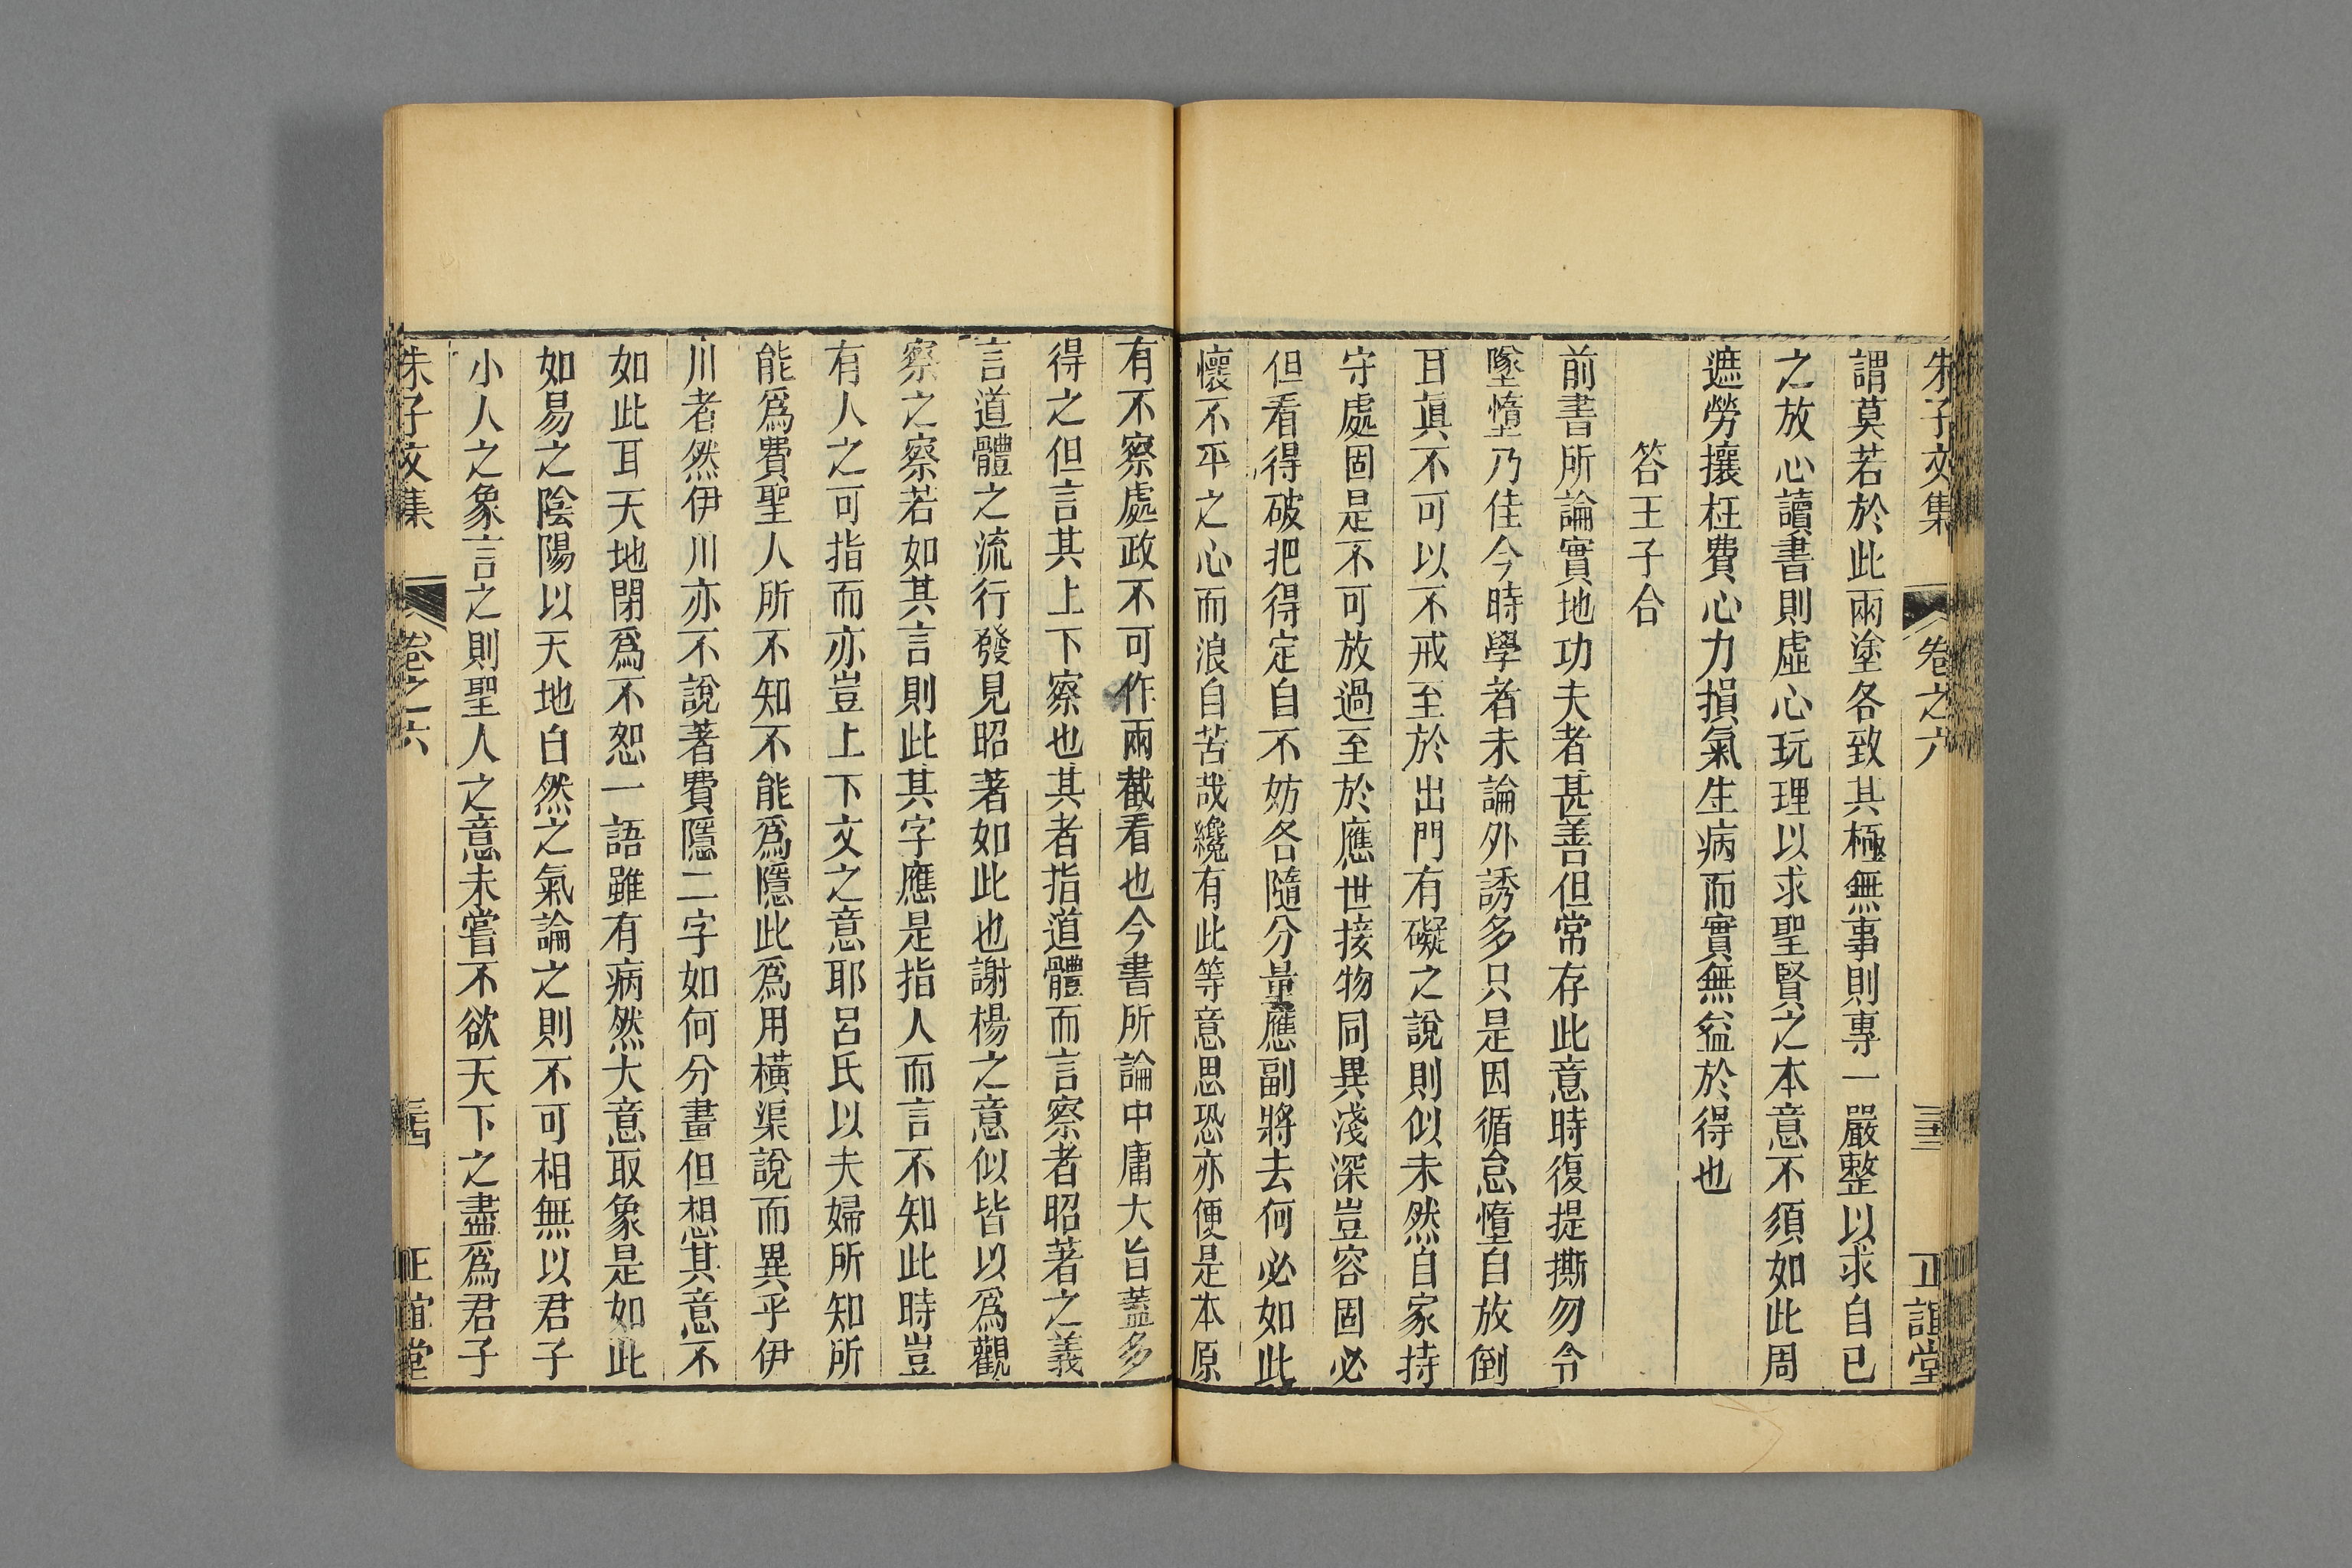 朱子文集 卷之六 三十三 正誼堂
謂莫若於此兩塗各致其極無事則專一嚴整以求自已
之放心讀書則虛心玩理以求聖賢之本意不須如此周
遮勞攘枉費心力損氣生病而實無益於得也
答王子合
前書所論實地功夫者甚善但常存此意時復提撕勿令
墜惰乃佳今時學者未論外誘多只是因循怠惰自放倒
耳眞不可以不戒至於出門有礙之說則似未然自家持
守處固是不可放過至於應世接物同異淺深豈容固必
但看得破把得定自不妨各隨分量應副將去何必如此
懷不平之心而浪自苦哉纔有此等意思恐亦便是本原
有不察處政不可作兩截看也今書所論中庸大旨蓋多
得之但言其上下察也其者指道體而言察者昭著之義
言道體之流行發見昭著如此也謝楊之意似皆以爲觀
察之察若如其言則此其字應是指人而言不知此時豈
有人之可指而亦豈上下文之意耶呂氏以夫婦所知所
能爲費聖人所不知不能爲隱此爲用橫渠說而異乎伊
川者然伊川亦不說著費隱二字如何分畫但想其意不
如此耳天地閉爲不恕一語雖有病然大意取象是如此
如易之陰陽以天地自然之氣論之則不可相無以君子
小人之象言之則聖人之意未嘗不欲天下之盡爲君子
朱子文集 卷之六 正誼堂